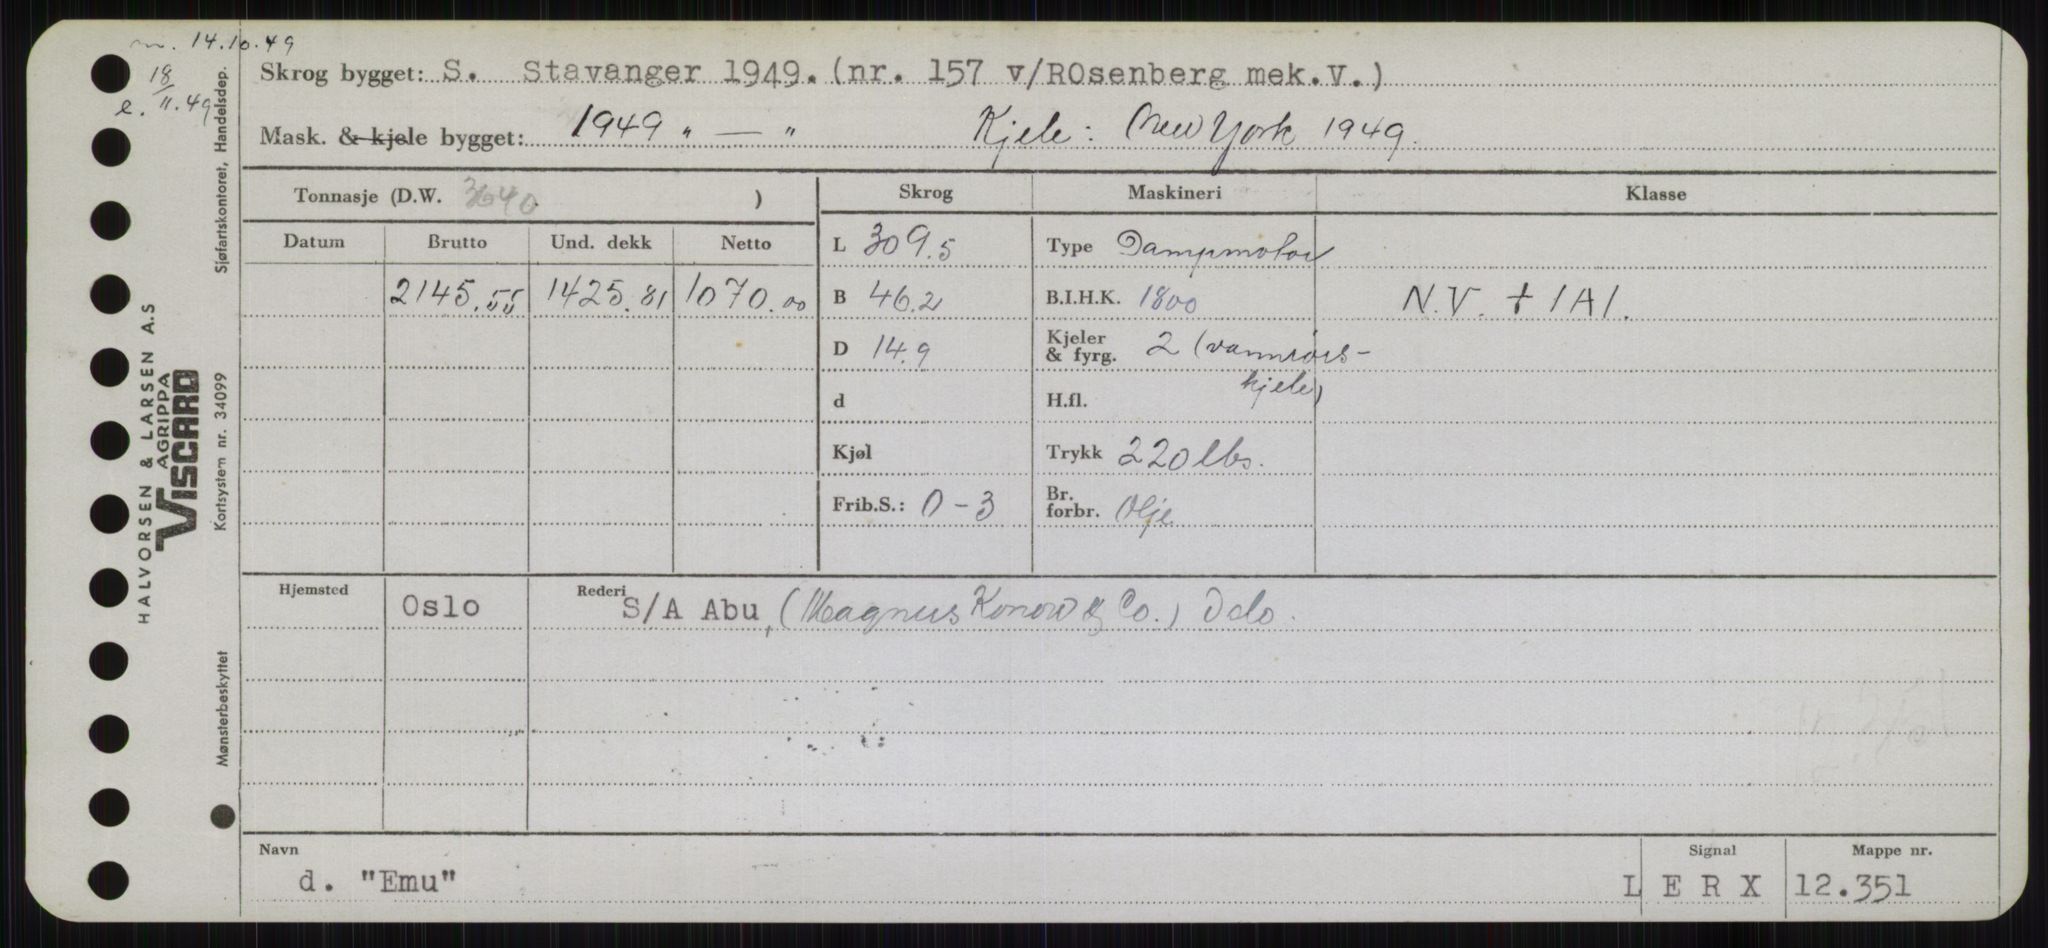 m. 14.10.49
e. 18/11.49
Skrog bygget: S. Stavanger 1949. (nr. 157 v/ROsenberg mek.V.)
Mask. & kjele bygget: 1949 " — " Kjele: New York 1949.
Tonnasje (D.W. 3640. ) Skrog Maskineri Klasse
Datum Brutto Und. dekk Netto L 309.5 Type Dampmotor
2145.55 1425.81 1070.00 B 46.2 B.I.H.K. 1800 N.V. + 1A1.
D 14.9 Kjeler & fyrg. 2 (vannrørs-
kjeler)
d H.fl.
Kjøl Trykk 220 lbs.
Frib.S.: 0-3 Br. forbr. Olje
Hjemsted Oslo Rederi S/A Abu, (Magnus Konow & Co.) Oslo.
Navn Signal Mappe nr.
d. "Emu" L E R X 12.351
HALVORSEN & LARSEN A.S
AGRIPPA
VISCARD
Sjøfartskontoret, Handelsdep.
Kortsystem nr. 34099
Mønsterbeskyttet